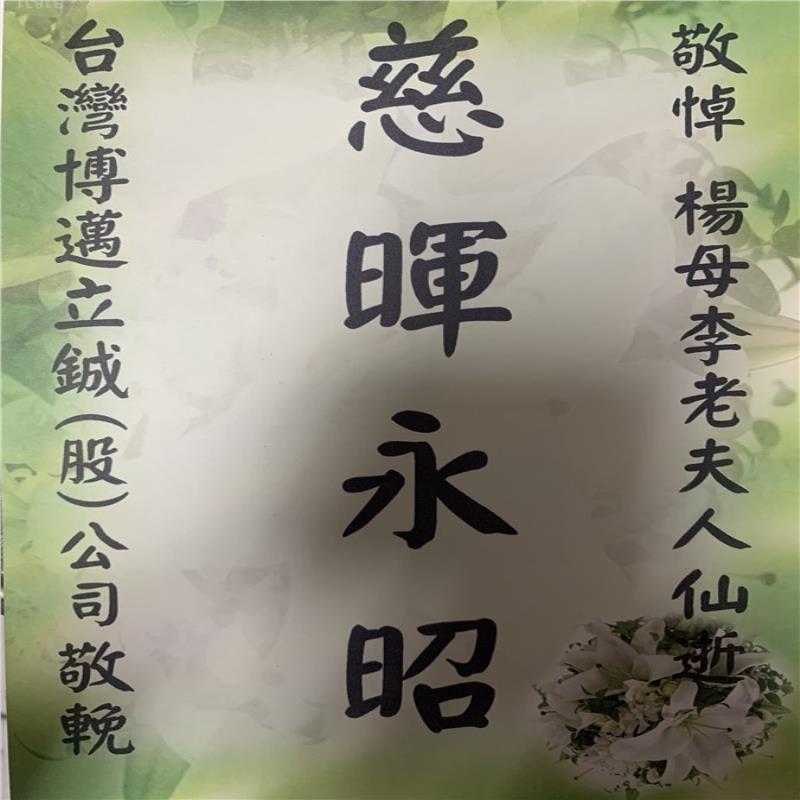 敬悼 楊母李老夫人仙逝
慈暉永昭
台灣博邁立鋮(股)公司敬輓